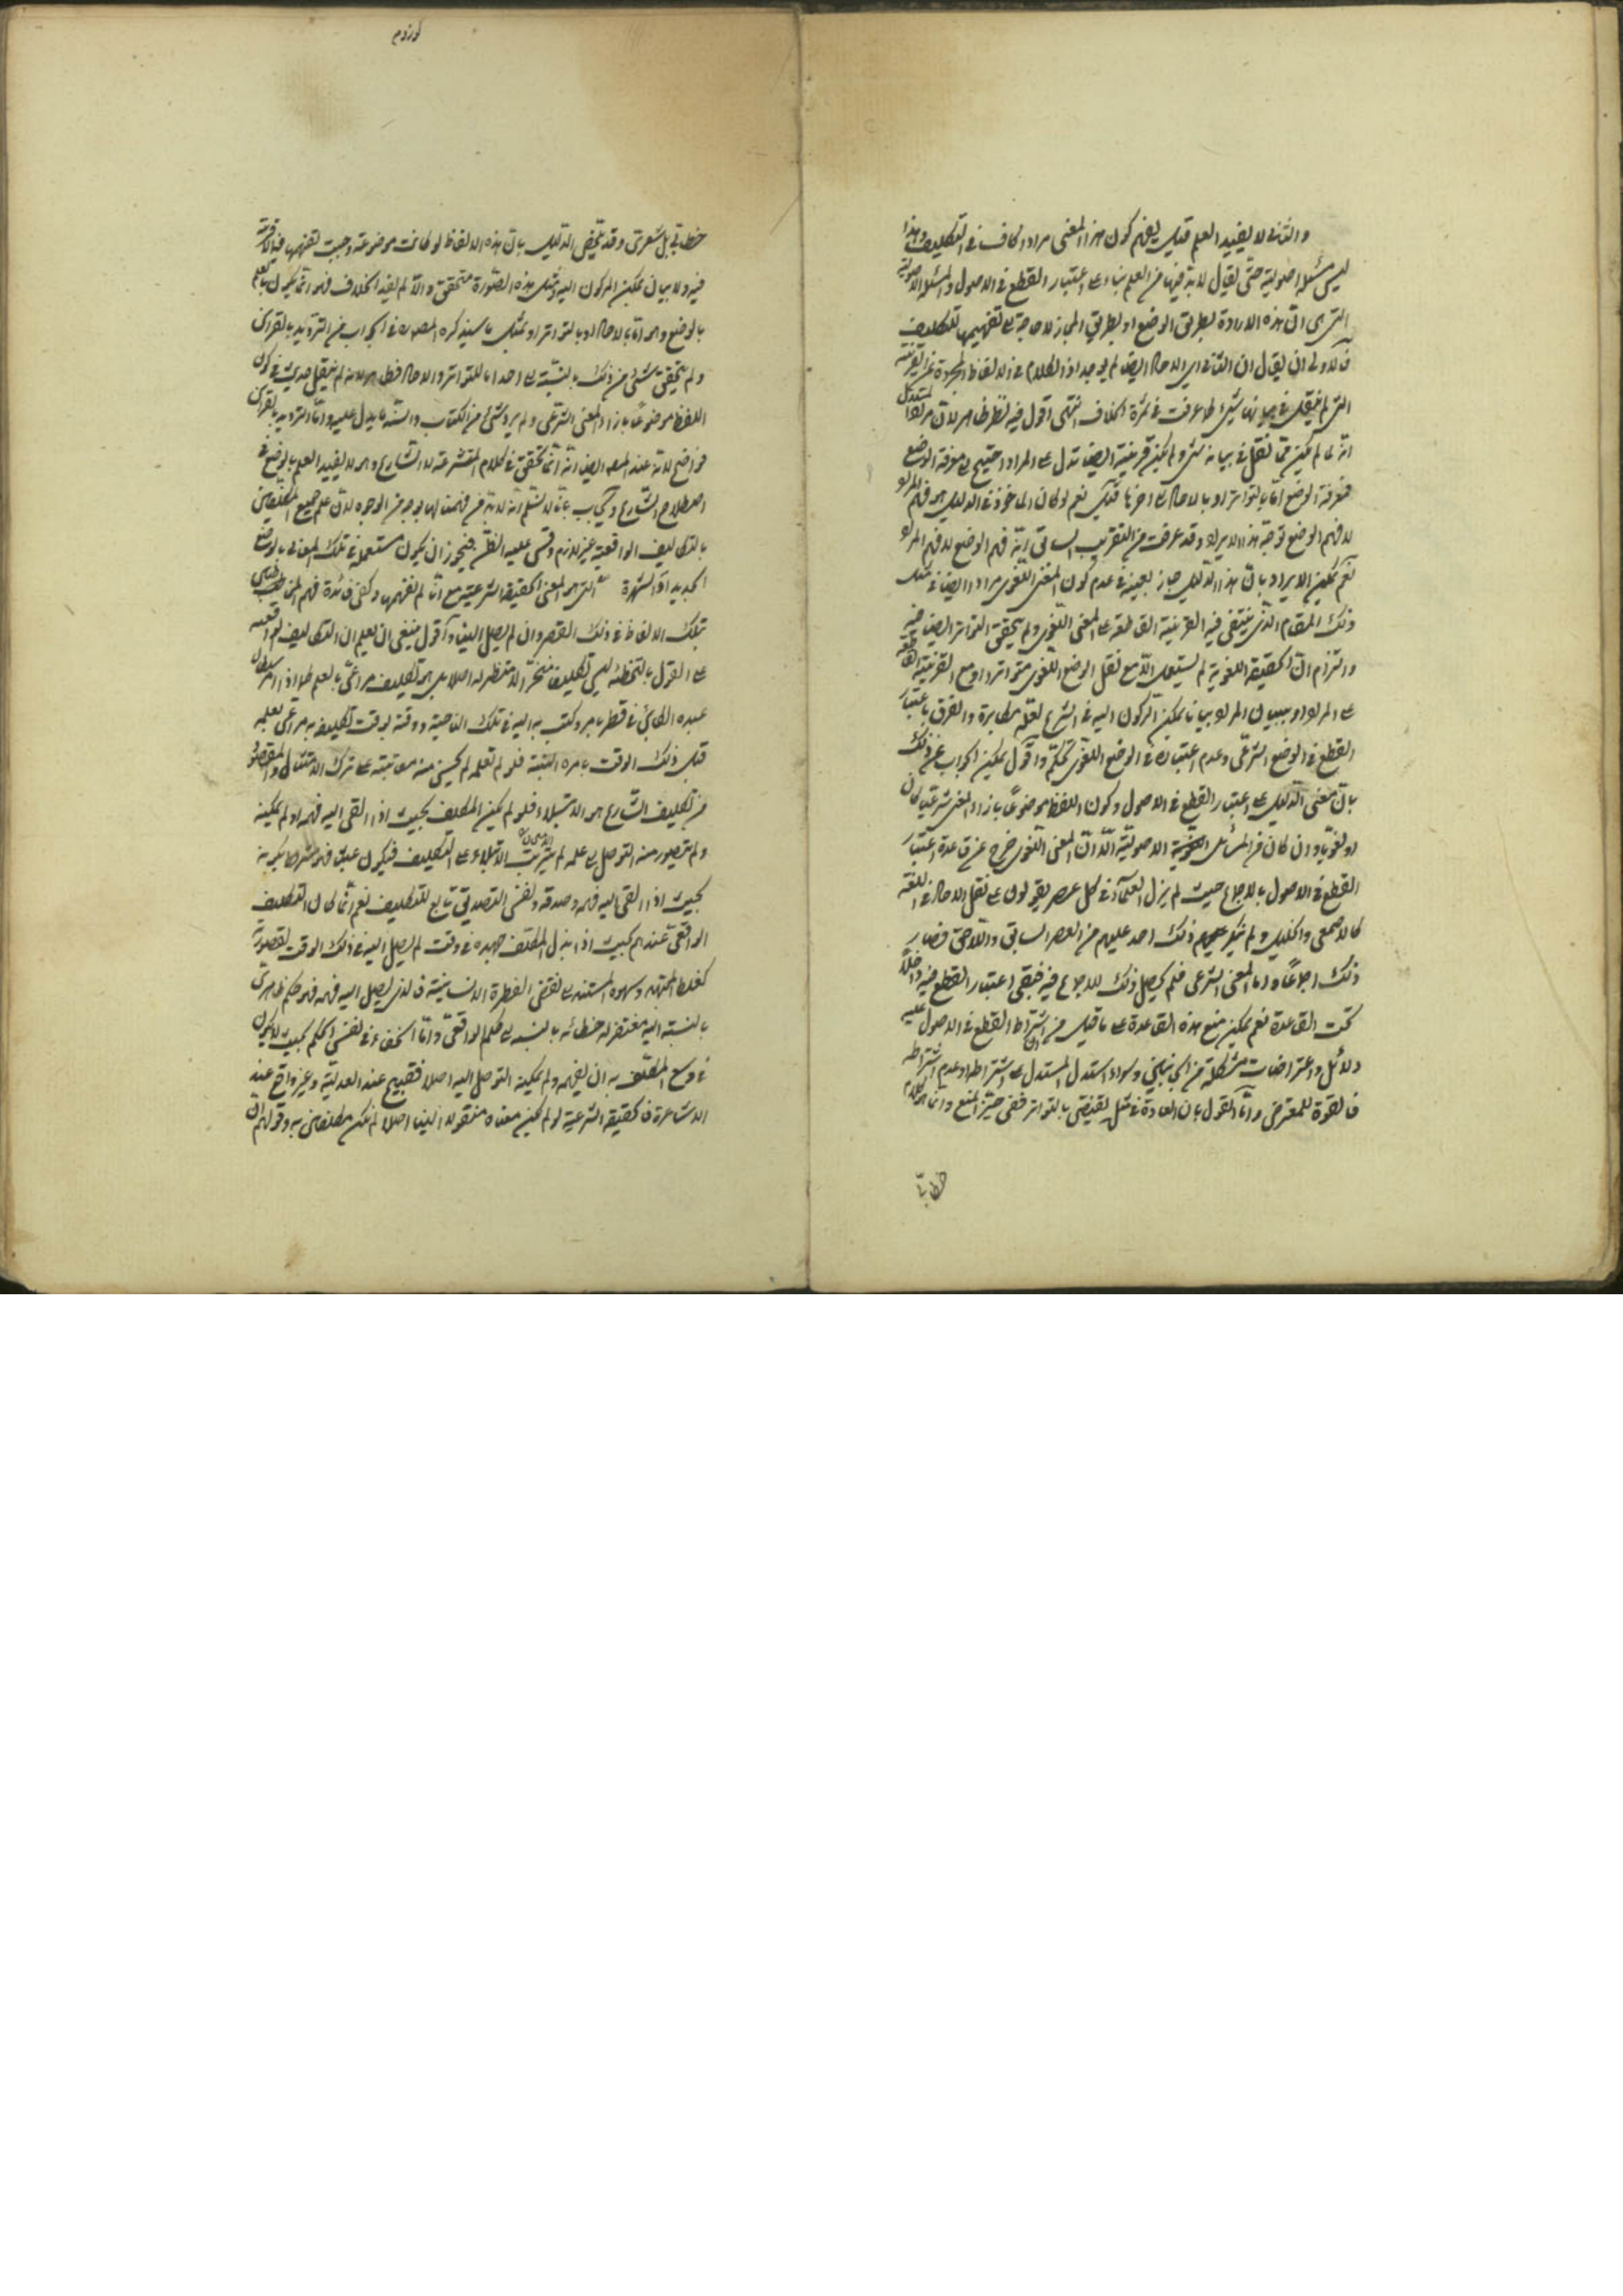 والثاني لا يفيد العلم قيل يفهم كون هذا المعنى مراد الكاف في التكليف وهذا
ليس مسئلة اصولية حتى يقال لابد فيها من العلم بناء على اعتبار القطع في الاصول والمسئلة الاصولية
التي هي ان هذه الارادة بطريق الوضع او بطريق المجاز لا حاجة الى تفهيمها للتكليف
فالاولى ان يقال ان الثاني اي الاحاد ايضا لم يوجد اذ الكلام في الالفاظ المجردة عن القرينة
التي لم ينقل في بيانها شيء كما عرفت في ثمرة الخلاف انتهى اقول فيه نظر ظاهر لان مراد المستدل
انه لما لم يكن مما نقل في بيانه شيء ولم يكن قرينة ايضا تدل على المراد احتيج الى معرفة الوضع
فمعرفة الوضع اما بالتواتر او بالاحاد الى اخر ما قيل نعم لو كان الماخوذ في الدليل هو فهم المراد
لا فهم الوضع توجه هذا الايراد وقد عرفت من التقريب السابق انه فهم الوضع لا فهم المراد
نعم يمكن الايراد بان هذا الدليل جاز بعينه في عدم كون المعنى اللغوي مرادا ايضا في مثل
ذلك المقام الذي ينتفي فيه القرينة القاطعة على المعنى اللغوي ولم يتحقق التواتر ايضا فيه
والتزام ان الحقيقة اللغوية لم يستعمل الا مع نقل الوضع اللغوي متواترا او مع القرينة القاطعة
على المراد او ببيان المراد بيانا يمكن الركون اليه في الشرع لعله مكابرة والفرق باعتبار
القطع في الوضع الشرعي وعدم اعتباره في الوضع اللغوي تحكم واقول يمكن الجواب عن ذلك
بان مبنى الدليل على اعتبار القطع في الاصول وكون اللفظ موضوعا بازاء المعنى شرعيا كان
او لغويا وان كان من المسائل اللغوية الاصولية الا ان المعنى اللغوي خرج عن قاعدة اعتبار
القطع في الاصول بالاجماع حيث لم يزل العلماء في كل عصر يقولون على نقل الاحاد في اللغة
كالاصمعي والخليل ولم ينكر عليهم ذلك احد عليهم من العصر السابق واللاحق فصار
ذلك اجماعا واما المعنى الشرعي فلم يحصل ذلك الاجماع فيه فبقي اعتبار القطع فيه داخلا
تحت القاعدة نعم يمكن منع هذه القاعدة على ما قيل من ان اشتراط القطع في الاصول عليه
دلائل واعتراضات مشكلة من الجانبين وسواء استدل المستدل على اشتراطه او عدم اشتراطه
فالقوة للمعترض واما القول بان العادة في مثل يقتضي بالتواتر ففي حيز المنع وانما الكلام
خطابي
خطابي بل شعري وقد يلخص الدليل بان هذه الالفاظ لو كانت موضوعة وجبت تفهيمها فيما لا قرينة
فيه ولا بيان يمكن الركون اليه ومثل هذه الصورة متحقق والا لم يفد الخلاف فهو انما يكون بالعلم
بالوضع وهو اما بالاحاد او بالتواتر او بمثل ما سيذكره المصـ في الجواب من الترديد بالقراين
ولم يتحقق شيء من ذلك بالنسبة الى احد اما للتواتر والاحاد فظاهر لانه لم ينقل حديث في كون
اللفظ موضوعا بازاء المعنى الشرعي ولم يرد شيء من الكتاب والسنة ما يدل عليه واما الترديد بالقراين
فواضح لانه عند المصـ ايضا انه انما تحقق في كلام المتشرعة لا الشارع وهو لا يفيد العلم بالوضع في
اصطلاح الشارع ويجاب بانا لا نسلم انه لابد من فهمنا لها بوجه من الوجوه لان علم جميع المكلفين
بالتكاليف الواقعية غير لازم وقس عليه الظن فيجوز ان يكون مستعملة في تلك المعاني بالوضع
الجديد او الشهرة التي هو المعنى الحقيقة الشرعية مع انا لم نفهمها وكفى فائدة فهم المخاطبين
بتلك الالفاظ في ذلك العصر وان لم يصل الينا واقول ينبغي ان يعلم ان التكاليف الواقعية
على القول بالتخطئة ليس تكليف منجز الا منتظر له اصلا بل هو تكليف مراعى بالعلم كما اذا امر السلطان
عبده الكائن في قطر بامر وكتب به اليه في تلك الناحية ووقته بوقت تكليف به مراعى بعلمه
قبل ذلك الوقت بامره البتة فلو لم تعلمه لم يحسن منه معاتبته على ترك الامتثال والمقصود
من تكليف الشارع هو الابتلاء فلو لم يكن المكلف بحيث اذا القى اليه فهمه او لم يمكنه
ولم يتصور منه التوصل الى علمه لم يترتب الابتلاء على التكليف فيكون عبثا فهو مشروط بكونه
بحيث اذا القى اليه فهمه وصدقه ونفس التصديق تابع للتكليف نعم انما كان التكليف
الواقعي عندهم بحيث اذا بذل المكلف جهده في وقت لم يصل اليه في ذلك الوقت لقصوره
كغلط المجتهد وسهوه المستند الى نقص الفطرة الانسانية فالذي يصل اليه فهمه فهو حكم ظاهري
بالنسبة اليه مغتفر له خطائه بالنسبة الى حكم الواقعي واما الخفاء في نفس الحكم بحيث لا يكون
في وسع المكلف به ان يفهمه ولم يمكنه التوصل اليه اصلا فقبيح عند العدلية وغير واقع عند
الاشاعرة فالحقيقة الشرعية لو لم يكن معناه منقولا الينا اصلا لم نكن مكلفين به وقولهم ان